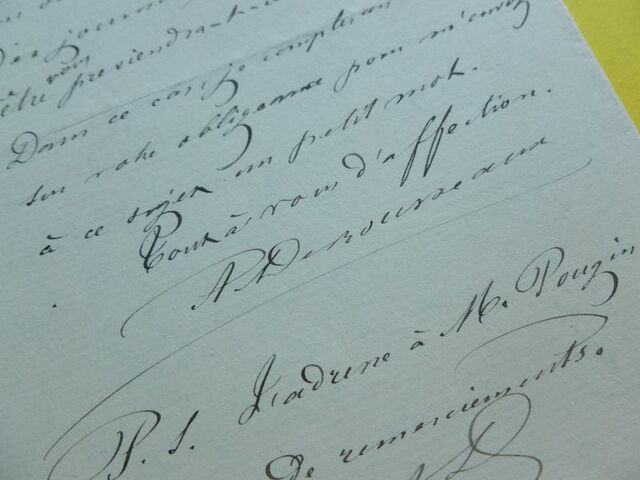 vous
être préviendra-t-
Dans ce cas, je compterai
sur votre obligeance pour m'envoyer
à ce sujet un petit mot.
Tout à vous d'affection.
A. Desrousseaux
P. S. J'adresse à M. Pougin
de remerciements.